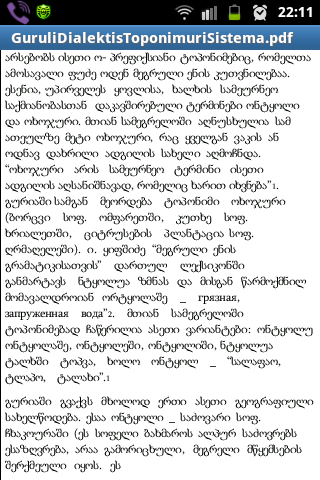 22:11
GuruliDialektisToponimuriSistema.pdf
არსებობს ისეთი ო- პრეფიქსიანი ტოპონიმებიც, რომელთა
ამოსავალი ფუძე ოდენ მეგრული ენის კუთვნილებაა.
ესენია, უპირველეს ყოვლისა, ხალხის სამეურნეო
საქმიანობასთან დაკავშირებული ტერმინები ონტყოლი
და ოხოჯური. მთიან სამეგრელოში აღნუსხულია სამ
ათეულზე მეტი ოხოჯური, რაც ყველგან ვაკის ან
ოდნავ დახრილი ადგილის სახელი აღმოჩნდა.
“ოხოჯური არის სამეურნეო ტერმინი ისეთი
ადგილის აღსანიშნავად, რომელიც ხარით იხვნება”1.
გურიაში სამგან მეორდება ტოპონიმი ოხოჯური
(ბორცვი სოფ. ომფარეთში, კუთხე სოფ.
ხრიალეთში, ციტრუსების პლანტაცია სოფ.
ღრმაღელეში). ი. ყიფშიძე “მეგრული ენის
გრამატიკისათვის” დართულ ლექსიკონში
განმარტავს ნტყოლუა ზმნას და მისგან წარმოქმნილ
მომავალდროიან ორტყოლაშე _ грязная,
запруженная вода”2. მთიან სამეგრელოში
ტოპონიმებად ჩაწერილია ასეთი ვარიანტები: ონტყოლუ
ონტყოლაშე, ონტყოლეში, ონტყოლიში, ნტყოლუა
ტალხში ტოპვა, ხოლო ონტყოლ _ “სალაფაო,
ტლაპო, ტალახი”.1
გურიაში გვაქვს მხოლოდ ერთი ასეთი გეოგრაფიული
სახელწოდება. ესაა ონტყოლი _ საძოვარი სოფ.
ჩხაკოურაში (ეს სოფელი ბახმაროს ალპურ საძოვრებს
ესაზღვრება, არაა გამორიცხული, მეგრელი მწყემსების
შერქმეული იყოს. ეს